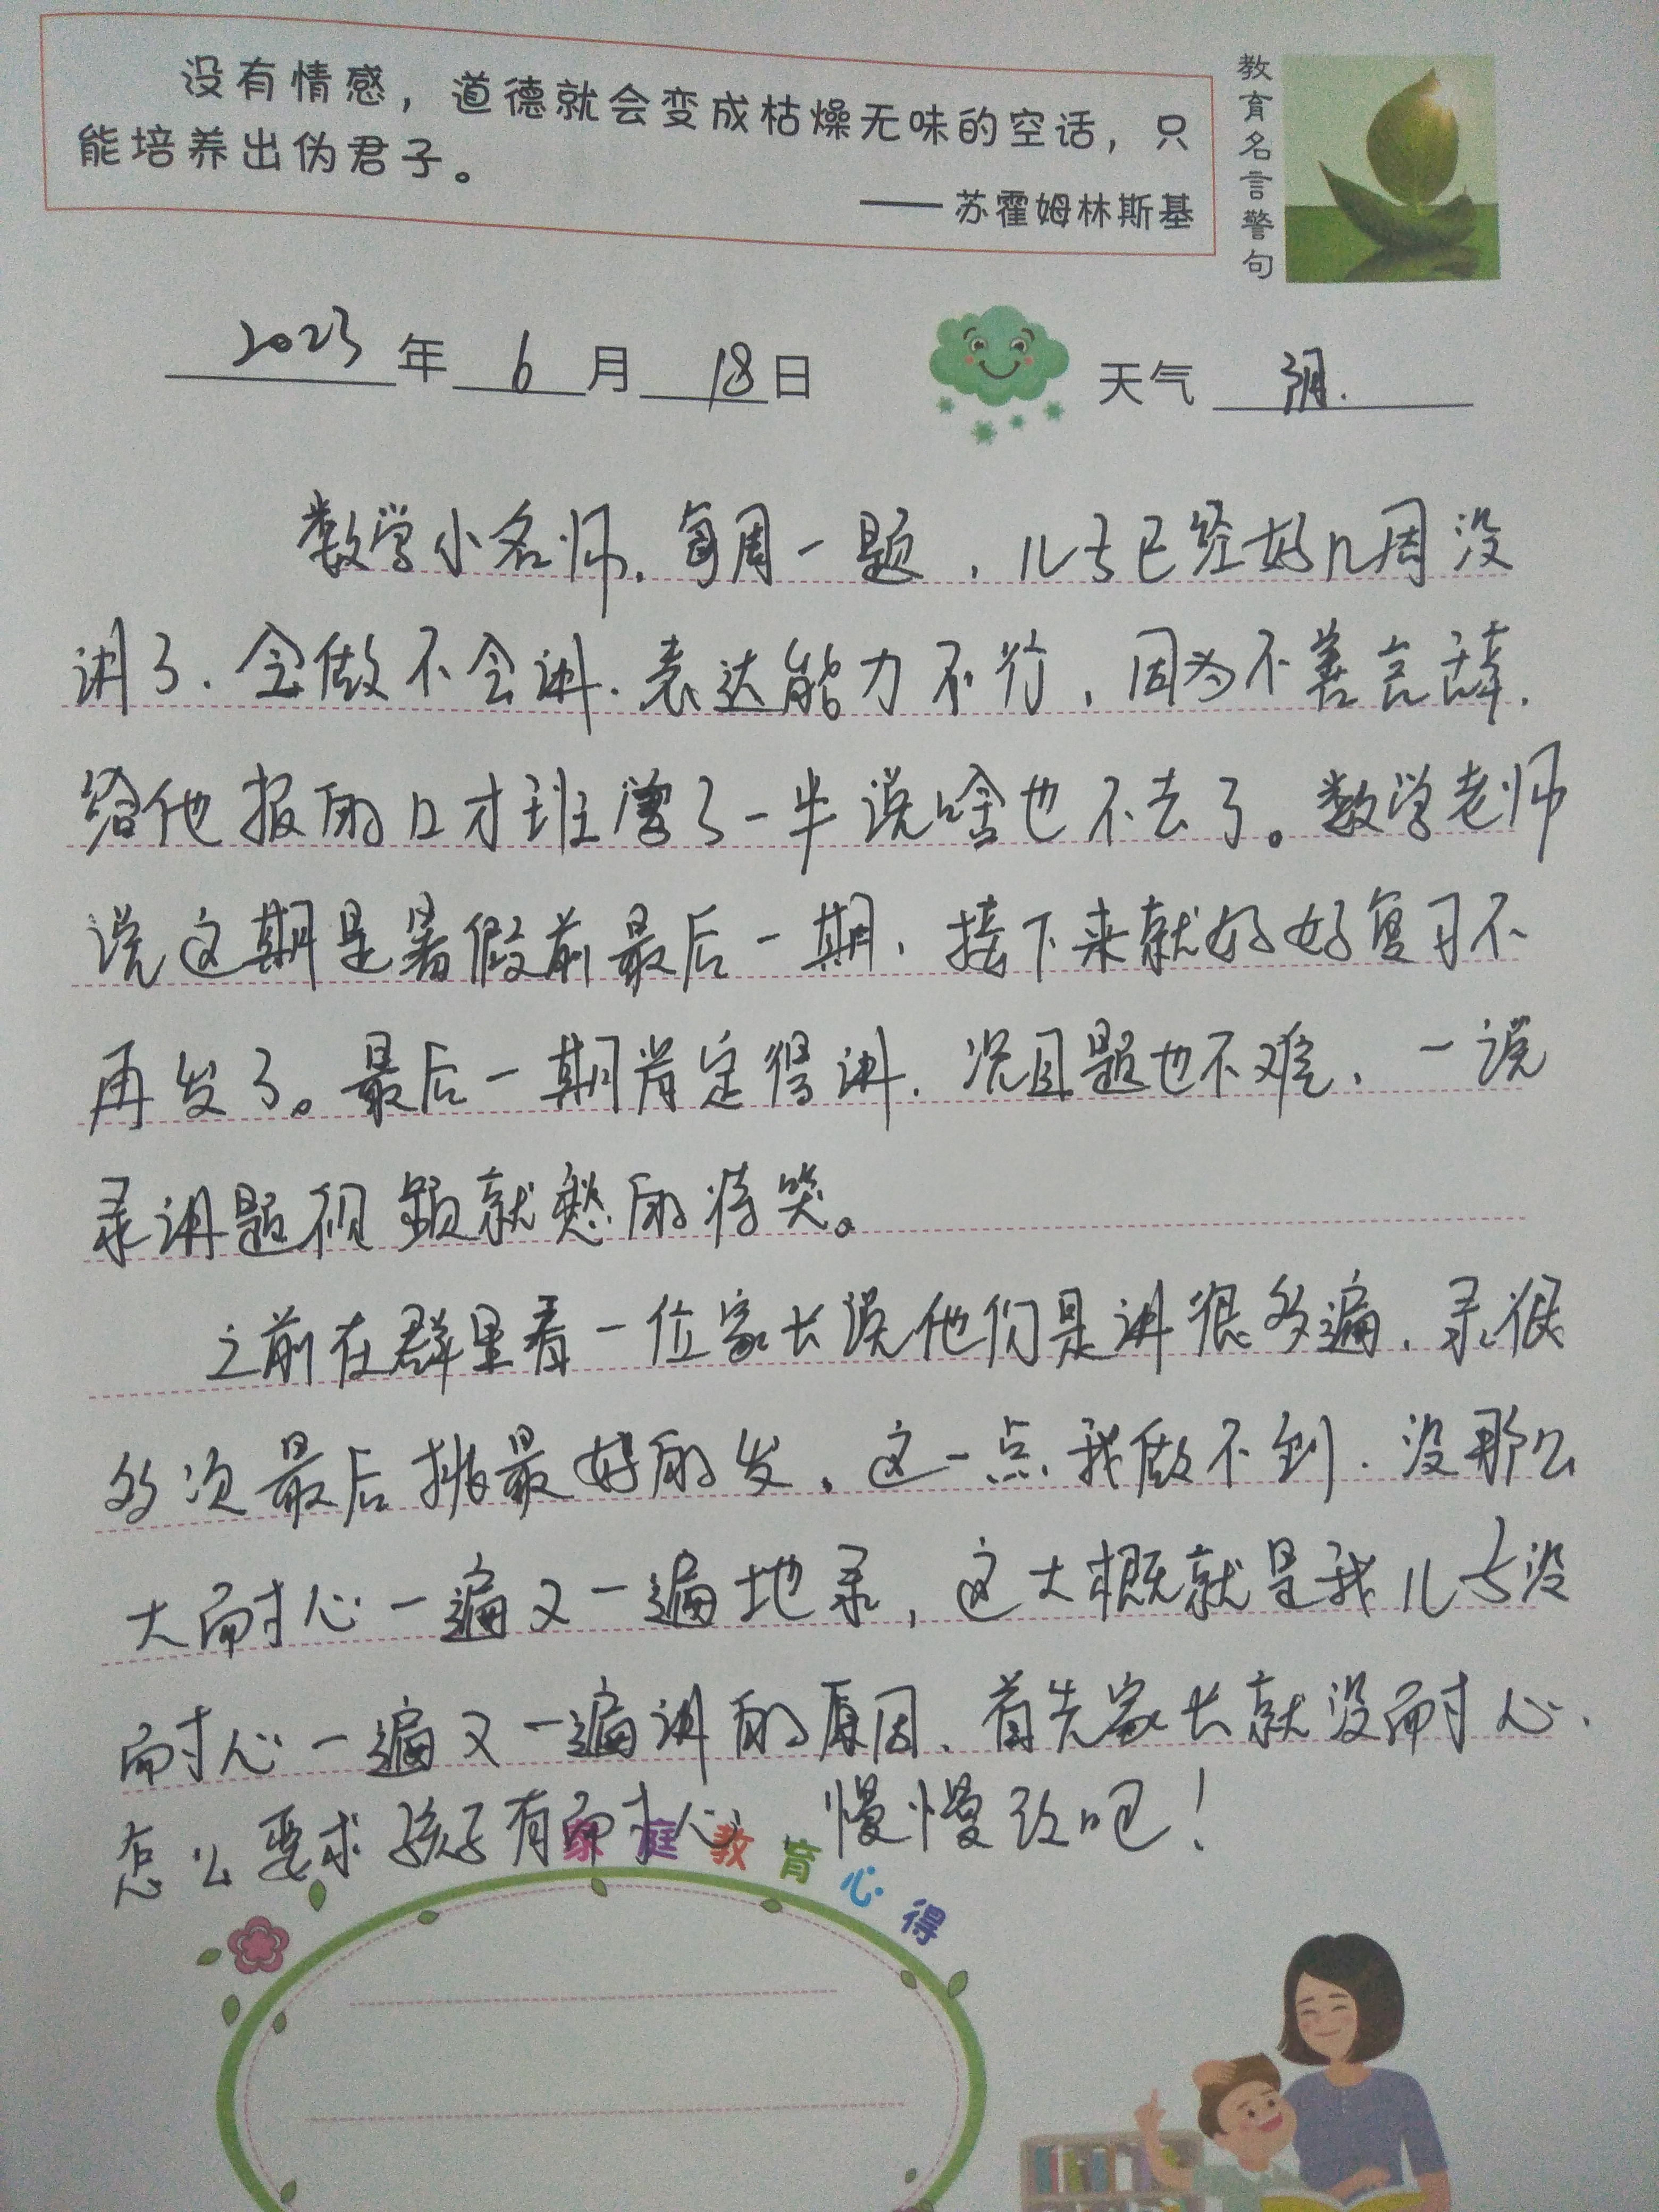 没有情感，道德就会变成枯燥无味的空话，只
能培养出伪君子。
——苏霍姆林斯基
教育名言警句
2023年6月18日 天气 阴.
数学小名师.每周一题，儿子已经好几周没
讲了.会做不会讲.表达能力不行，因为不善言辞.
给他报的口才班学了一半说啥也不去了。数学老师
说这期是暑假前最后一期、接下来就好好复习不
再发了。最后一期肯定得讲.况且题也不难、一说
录讲题视频就愁的
之前在群里看一位家长说他们是讲很多遍、录很
多次最后挑最好的发，这一点我做不到.没那么
大耐心一遍又一遍地录，这大概就是我儿子没
耐心一遍又一遍讲的原因、首先家长就没耐心.
怎么要求孩子有耐心 慢慢改吧！
家庭教育心得